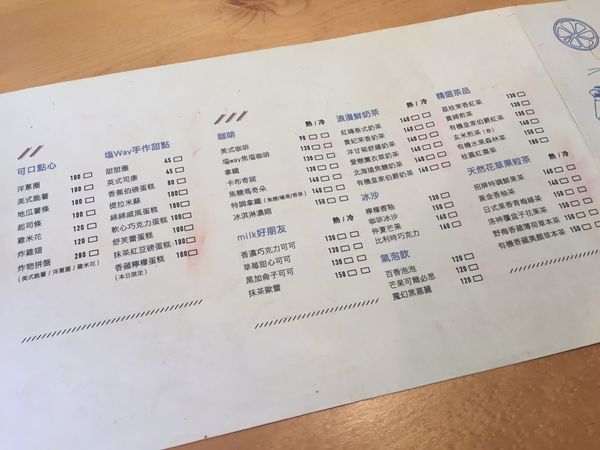 可口點心
洋蔥圈 100
美式脆薯 100
地瓜薯條 100
起司條 120
雞米花 120
炸雞翅 120
炸物拼盤 280
(美式脆薯 / 洋蔥圈 / 雞米花)
塩Way手作甜點
甜甜圈 45
英式司康 45
香蕉伯磅蛋糕 80
提拉米蘇 100
綿綿戚風蛋糕 100
軟心巧克力蛋糕 100
舒芙蕾蛋糕 100
抹茶紅豆磅蛋糕 100
香蘋檸檬蛋糕 100
(本日限定)
咖啡 熱 / 冷
美式咖啡 90
塩way焦塩咖啡 130
拿鐵 130
卡布奇諾 130
焦糖瑪奇朵 140
特調拿鐵 140
冰淇淋濃縮 140
milk好朋友 熱 / 冷
香濃巧克力可可 130
草莓甜心可可 130
黑加侖子可可 130
抹茶歐蕾 150
浪漫鮮奶茶 熱 / 冷
紅磚泰式奶茶 140
貴妃茉香奶茶 140
洋甘菊舒緩奶茶 140
愛戀薰衣草奶茶 140
北海道焦糖奶茶 140
有機皇家伯爵奶茶 140
冰沙
檸檬香柚 150
咖啡冰沙 150
仲夏芒果 150
比利時巧克力 160
氣泡飲
百香泡泡 120
芒果可爾必思 120
魔幻黑嘉麗 120
精選茶品 熱 / 冷
荔枝茉香紅茶 130
貴婦煎茶 130
有機皇家伯爵紅茶 130
玄米煎茶
有機水果森林茶
桂圓紅棗茶
天然花草果粒茶
招牌特調鮮果茶
黃金香柚茶
日式果香乳梅綠茶
洛神覆盆子花果茶
野莓香蘋薄荷草本茶
有機香蘋美顏草本茶